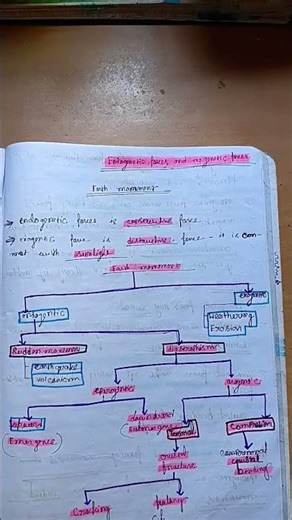 Endogenetic forces and exogenetic forces
Earth movement
→ endogentic forces is constructive forces
→ exogentic force is distructive forces - it is con
nect with sunlight
Earth movement
endogentic
exogentic
Weathering
Erosion
Sudden movement
diastrophism
earthquake
volcanism
epirogentic
orogentic
upward
Emergence
downward
submergence
Tensional
Compression
crustal
fracture
crustal
bending
Cracking
faulting